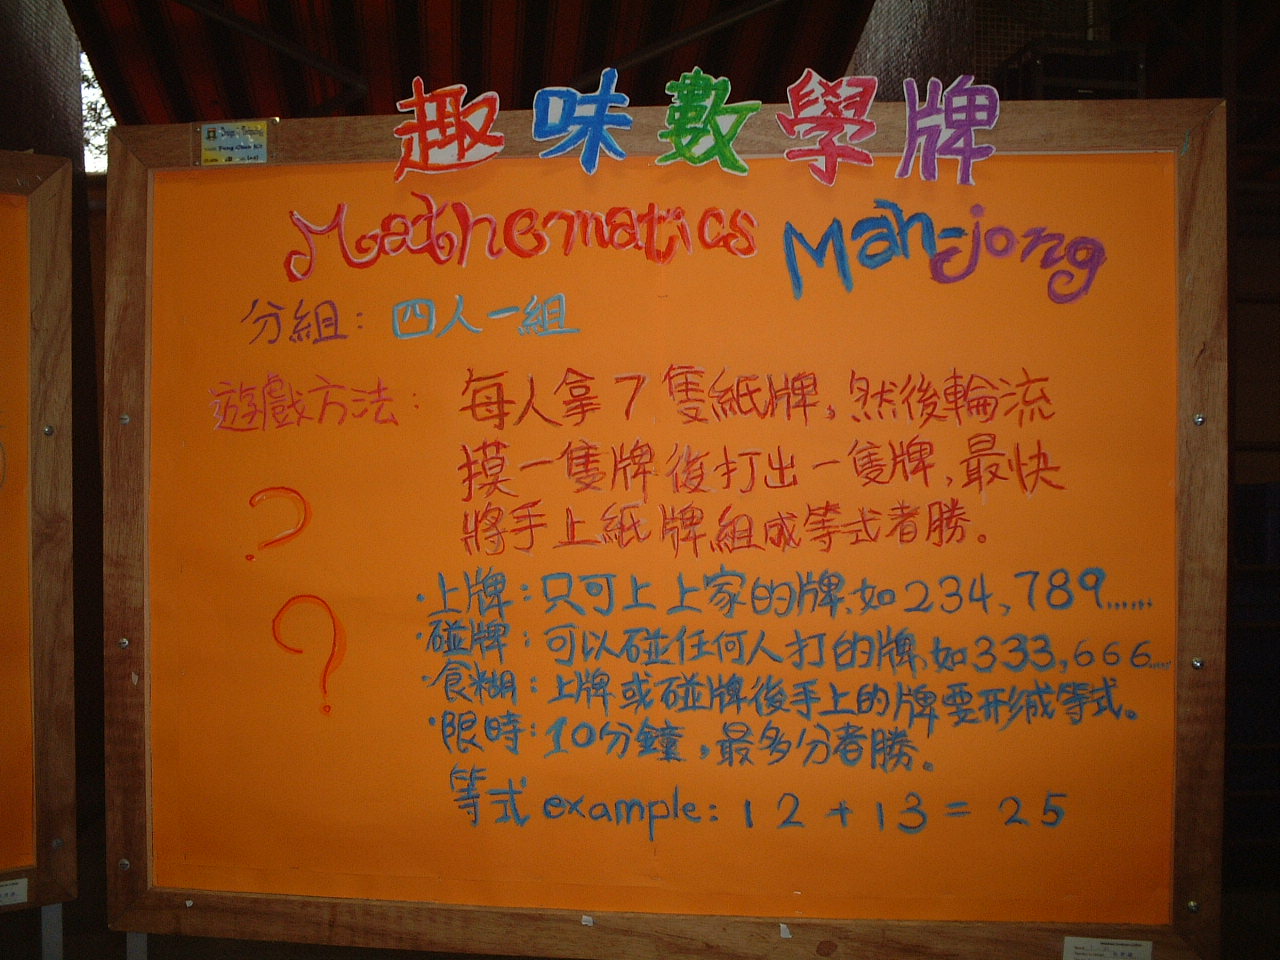 趣味數學牌
Mathematics Mah-jong
分組：四人一組
遊戲方法：每人拿7隻紙牌，然後輪流
摸一隻牌後打出一隻牌，最快
將手上紙牌組成等式者勝。
·上牌：只可上上家的牌，如234,789......
·碰牌：可以碰任何人打的牌，如333,666......
·食糊：上牌或碰牌後手上的牌要形成等式。
·限時：10分鐘，最多分者勝。
等式example: 12+13=25